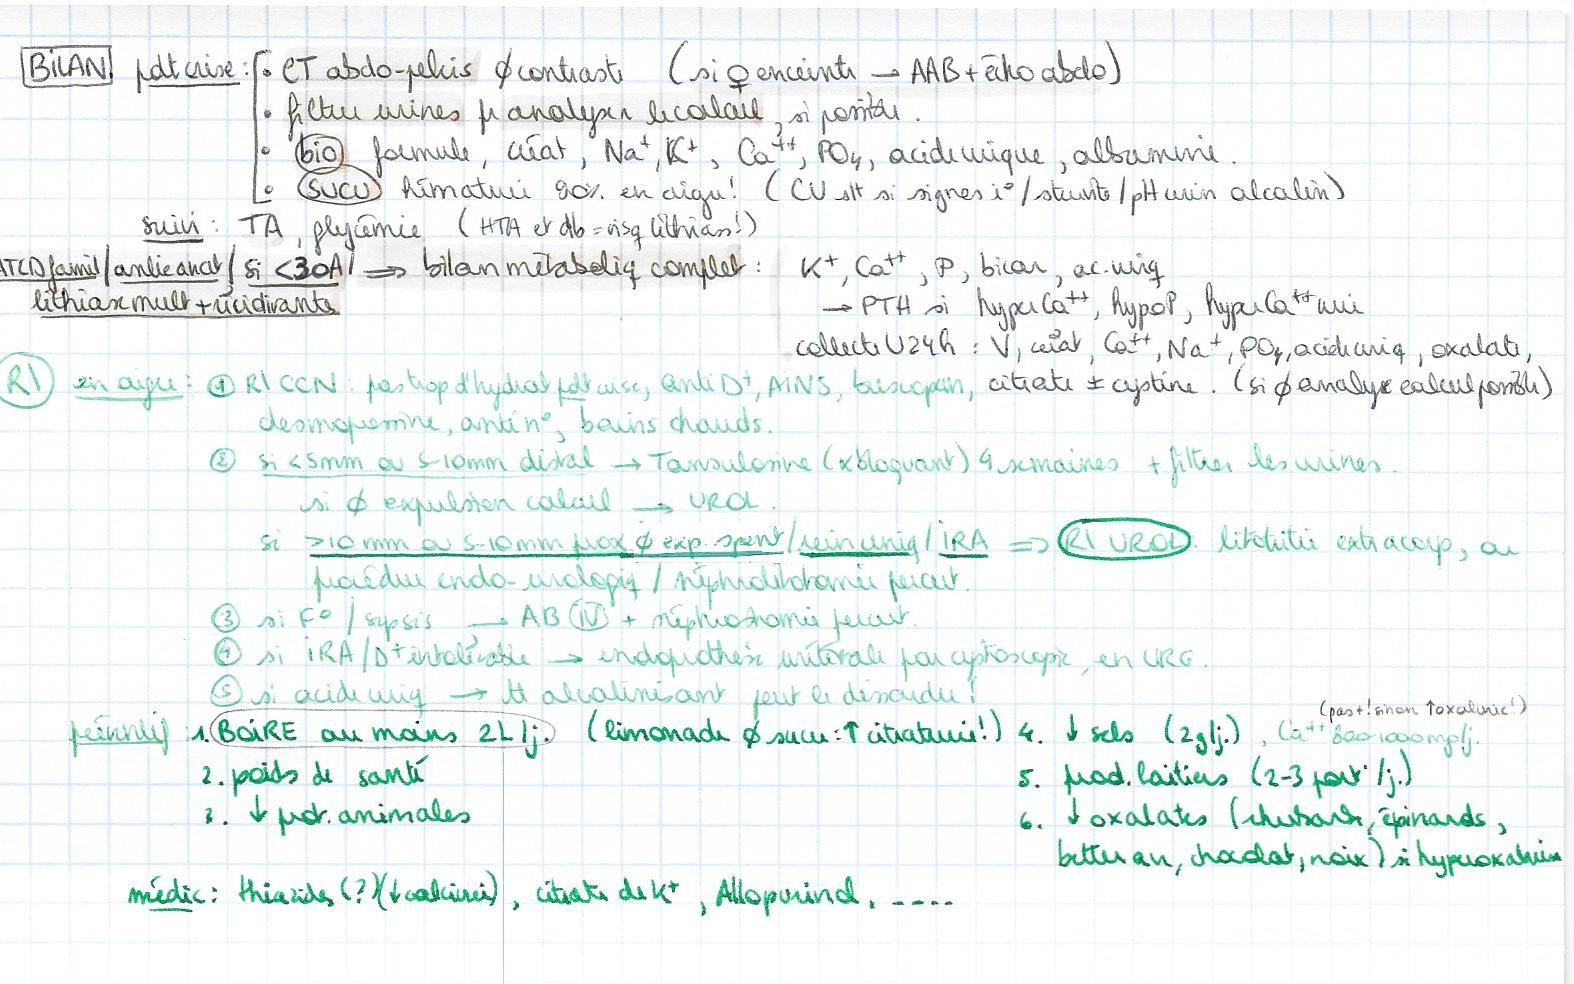 BILAN pdt crise : • CT abdo-pelvis ∅ contraste (si ♀ enceinte → AAB + écho abdo)
• filtrer urines pr analyser le calcul, si possible.
• bio formule, créat, Na+, K+, Ca++, PO4, acide urique, albumine.
• SUCU hématurie 90% en aigu! (CU slt si signes i° / struvite / pH urin alcalin)
suivi : TA, glycémie (HTA et db = risq lithiase!)
ATCD famil / anlie anat / si <30A / ⇒ bilan métaboliq complet : K+, Ca++, P, bicar, ac. uriq
lithiase mult + récidivante → PTH si hyperCa++, hypoP, hyperCa++urie
collecte U24h : V, créat, Ca++, Na+, PO4, acide uriq, oxalate,
citrate ± cystine. (si ∅ analyse calcul possible)
R/ en aigu : ① R/ CCN : pas trop d'hydrat pdt crise, anti D+, AINS, buscopan,
desmopressine, anti n°, bains chauds.
② si <5mm ou 5-10mm distal → Tamsulosine (α bloquant) 4 semaines + filtrer les urines.
si ∅ expulsion calcul → UROL.
si >10 mm ou 5-10mm prox ∅ exp. spont / rein uniq / IRA ⇒ R/ UROL. lithotritie extracorp, ou
procédure endo-urologiq / néphrolithotomie percut.
③ si F° / sepsis → AB IV + néphrostomie percut.
④ si IRA / D+ intolérable → endoprothèse urétérale par cystoscopie, en URG.
⑤ si acide uriq → tt alcalinisant peut le dissoudre!
préventif : 1. BOIRE au moins 2L/j. (limonade ∅ sucre : ↑ citraturie!) 4. ↓ sels (2g/j.), Ca++ 800-1000mg/j.
(pas +! sinon ↑oxalurie!)
2. poids de santé 5. prod. laitiers (2-3 port°/j.)
3. ↓ prot. animales 6. ↓ oxalates (rhubarbe, épinards,
betterave, chocolat, noix) si hyperoxalurie
médic : thiazides (?) (↓ calciurie), citrate de K+, Allopurinol, ----